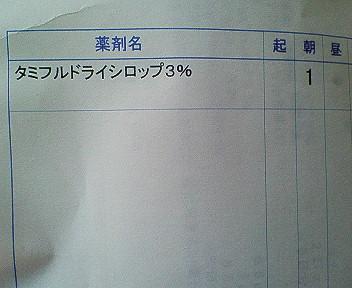 薬剤名 起 朝 昼
タミフルドライシロップ3% 1